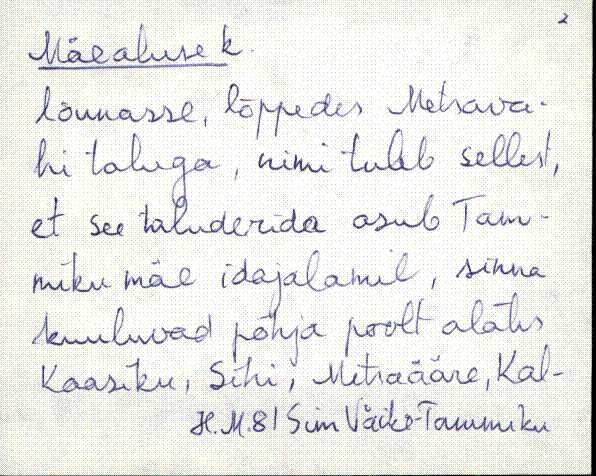 2
Mäealuse k.
lõunasse, lõppedes Metsava-
hi taluga, nimi tuleb sellest,
et see taluderida asub Tam-
miku mäe idajalamil, sinna
kuuluvad põhja poolt alates
Kaasiku, Sihi, Metsaääre, Kal-
H.M.81 Sim Väike-Tammiku